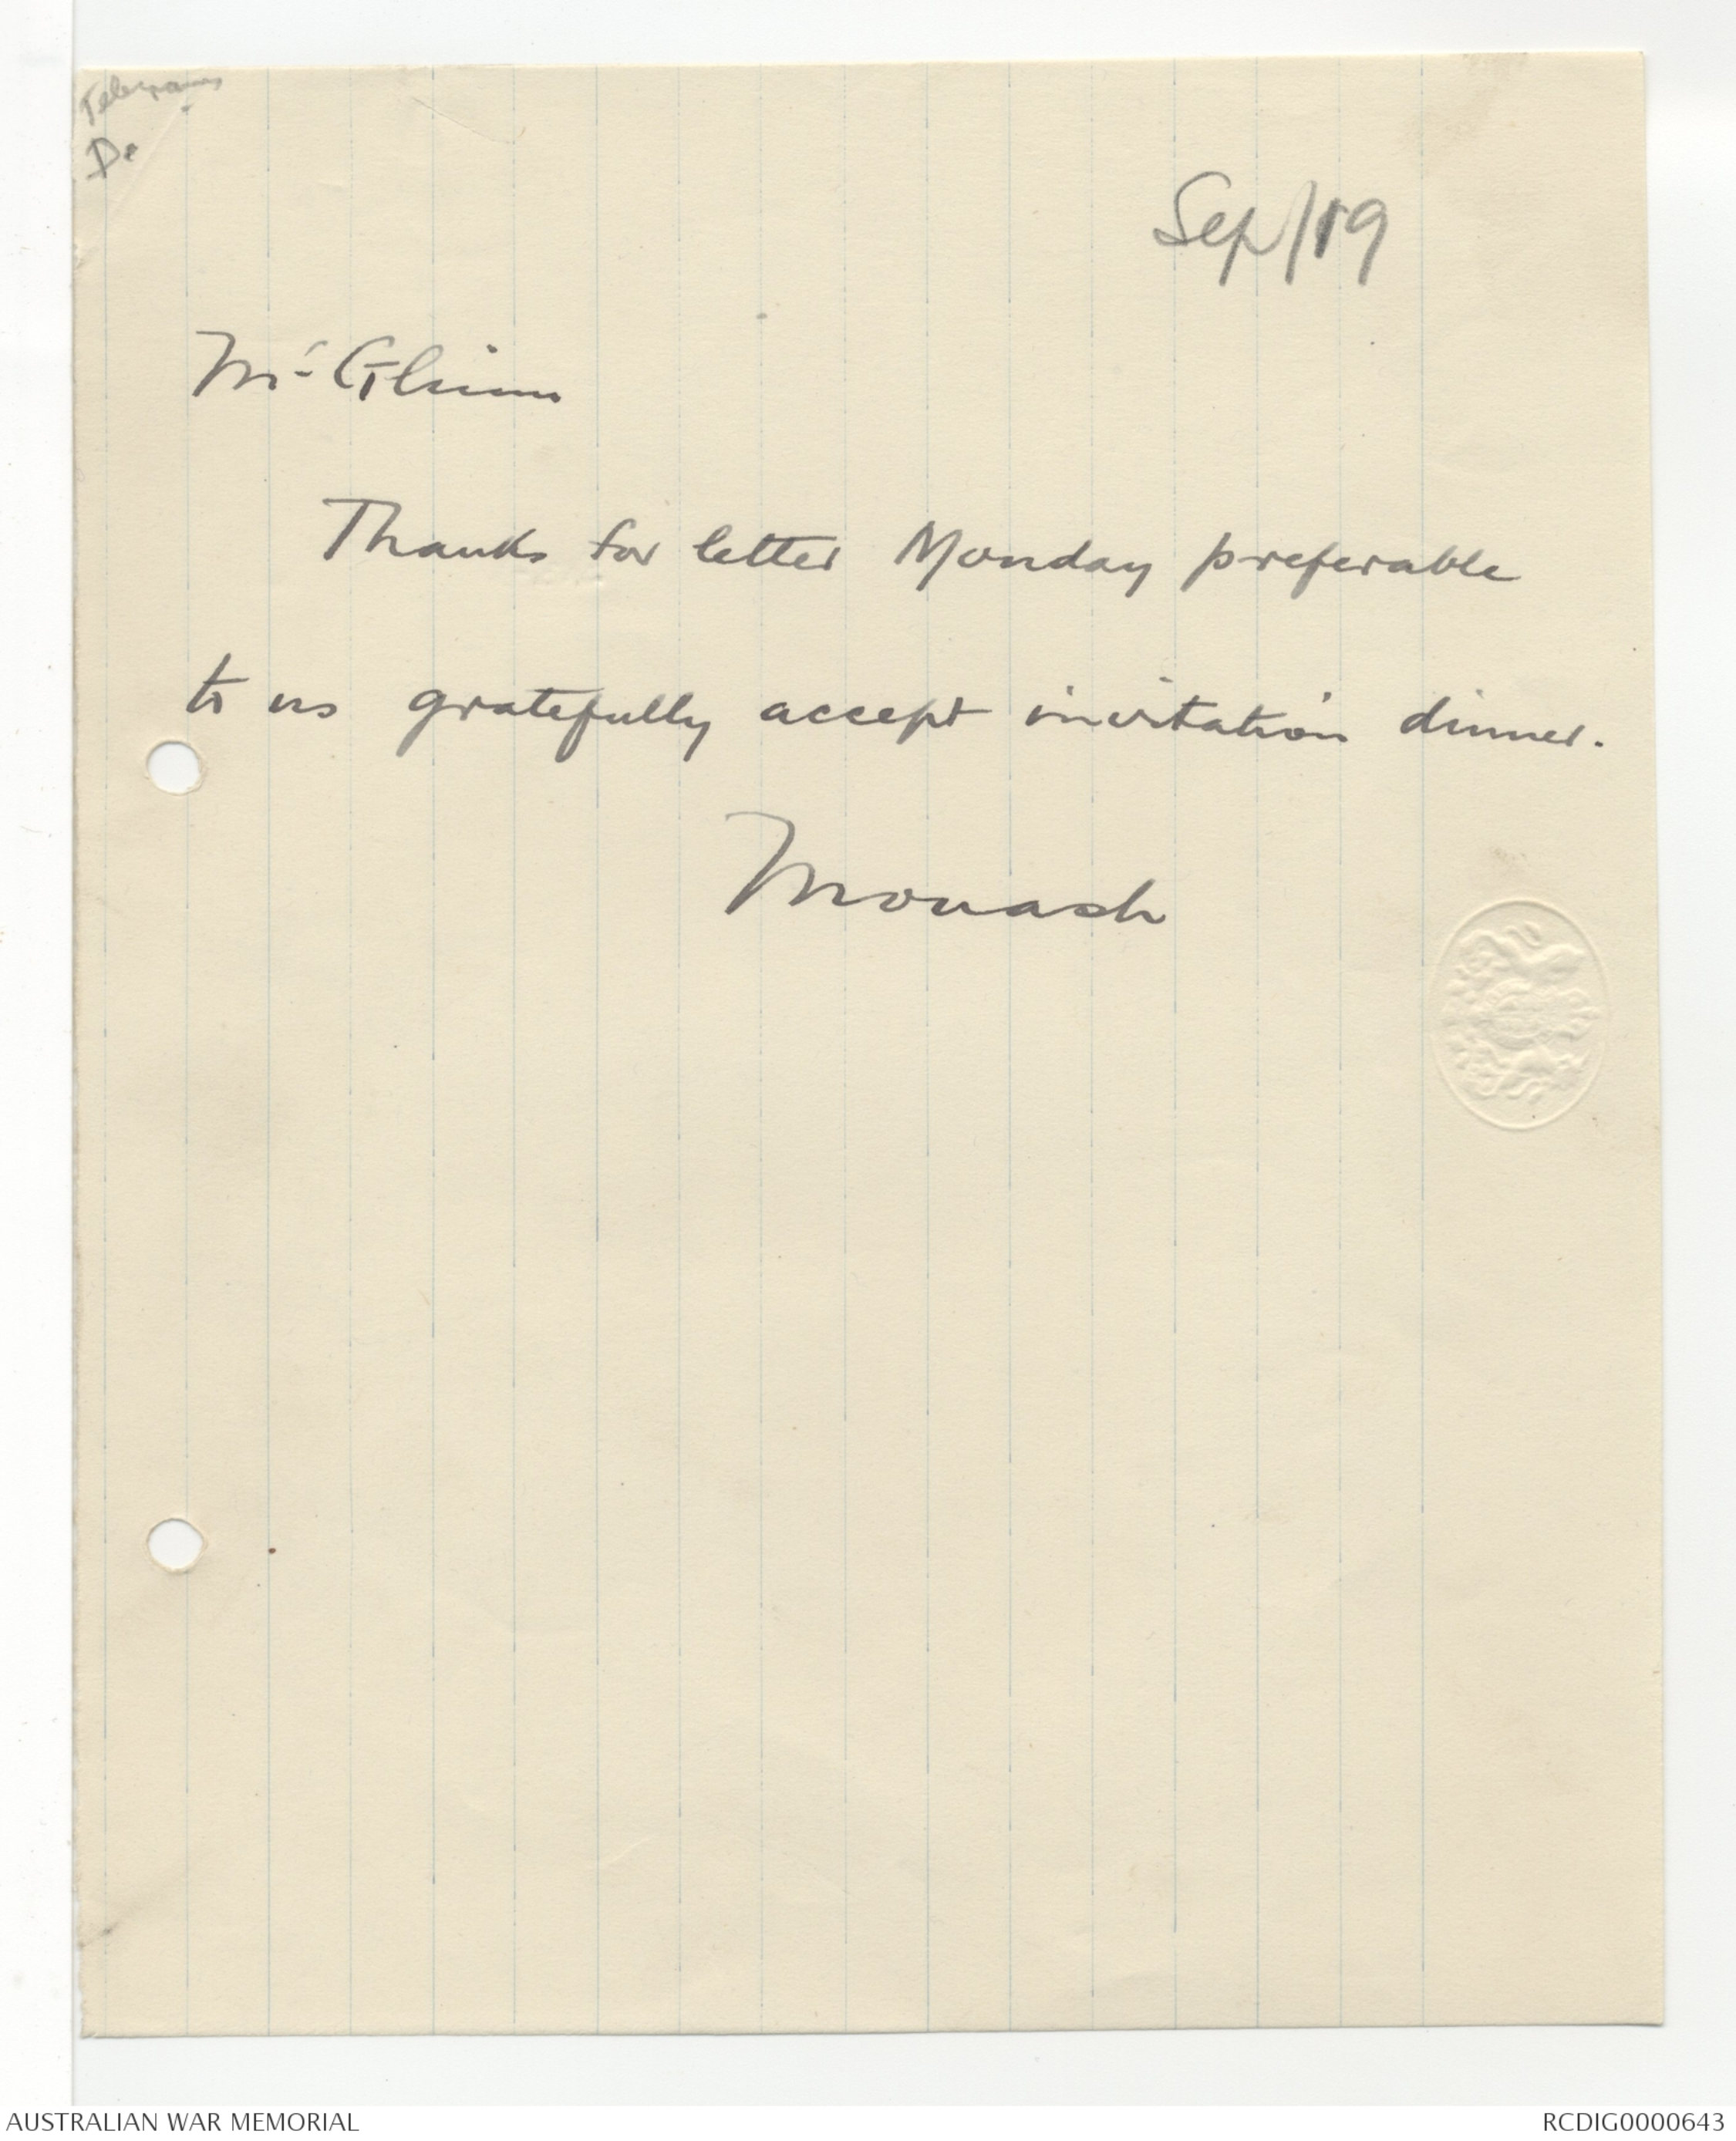 Telegrams
De
Sep/19
McGlinn
Thanks for letter Monday preferable
to us gratefully accept invitation dinner.
Monash
AUSTRALIAN WAR MEMORIAL
RCDIG0000643